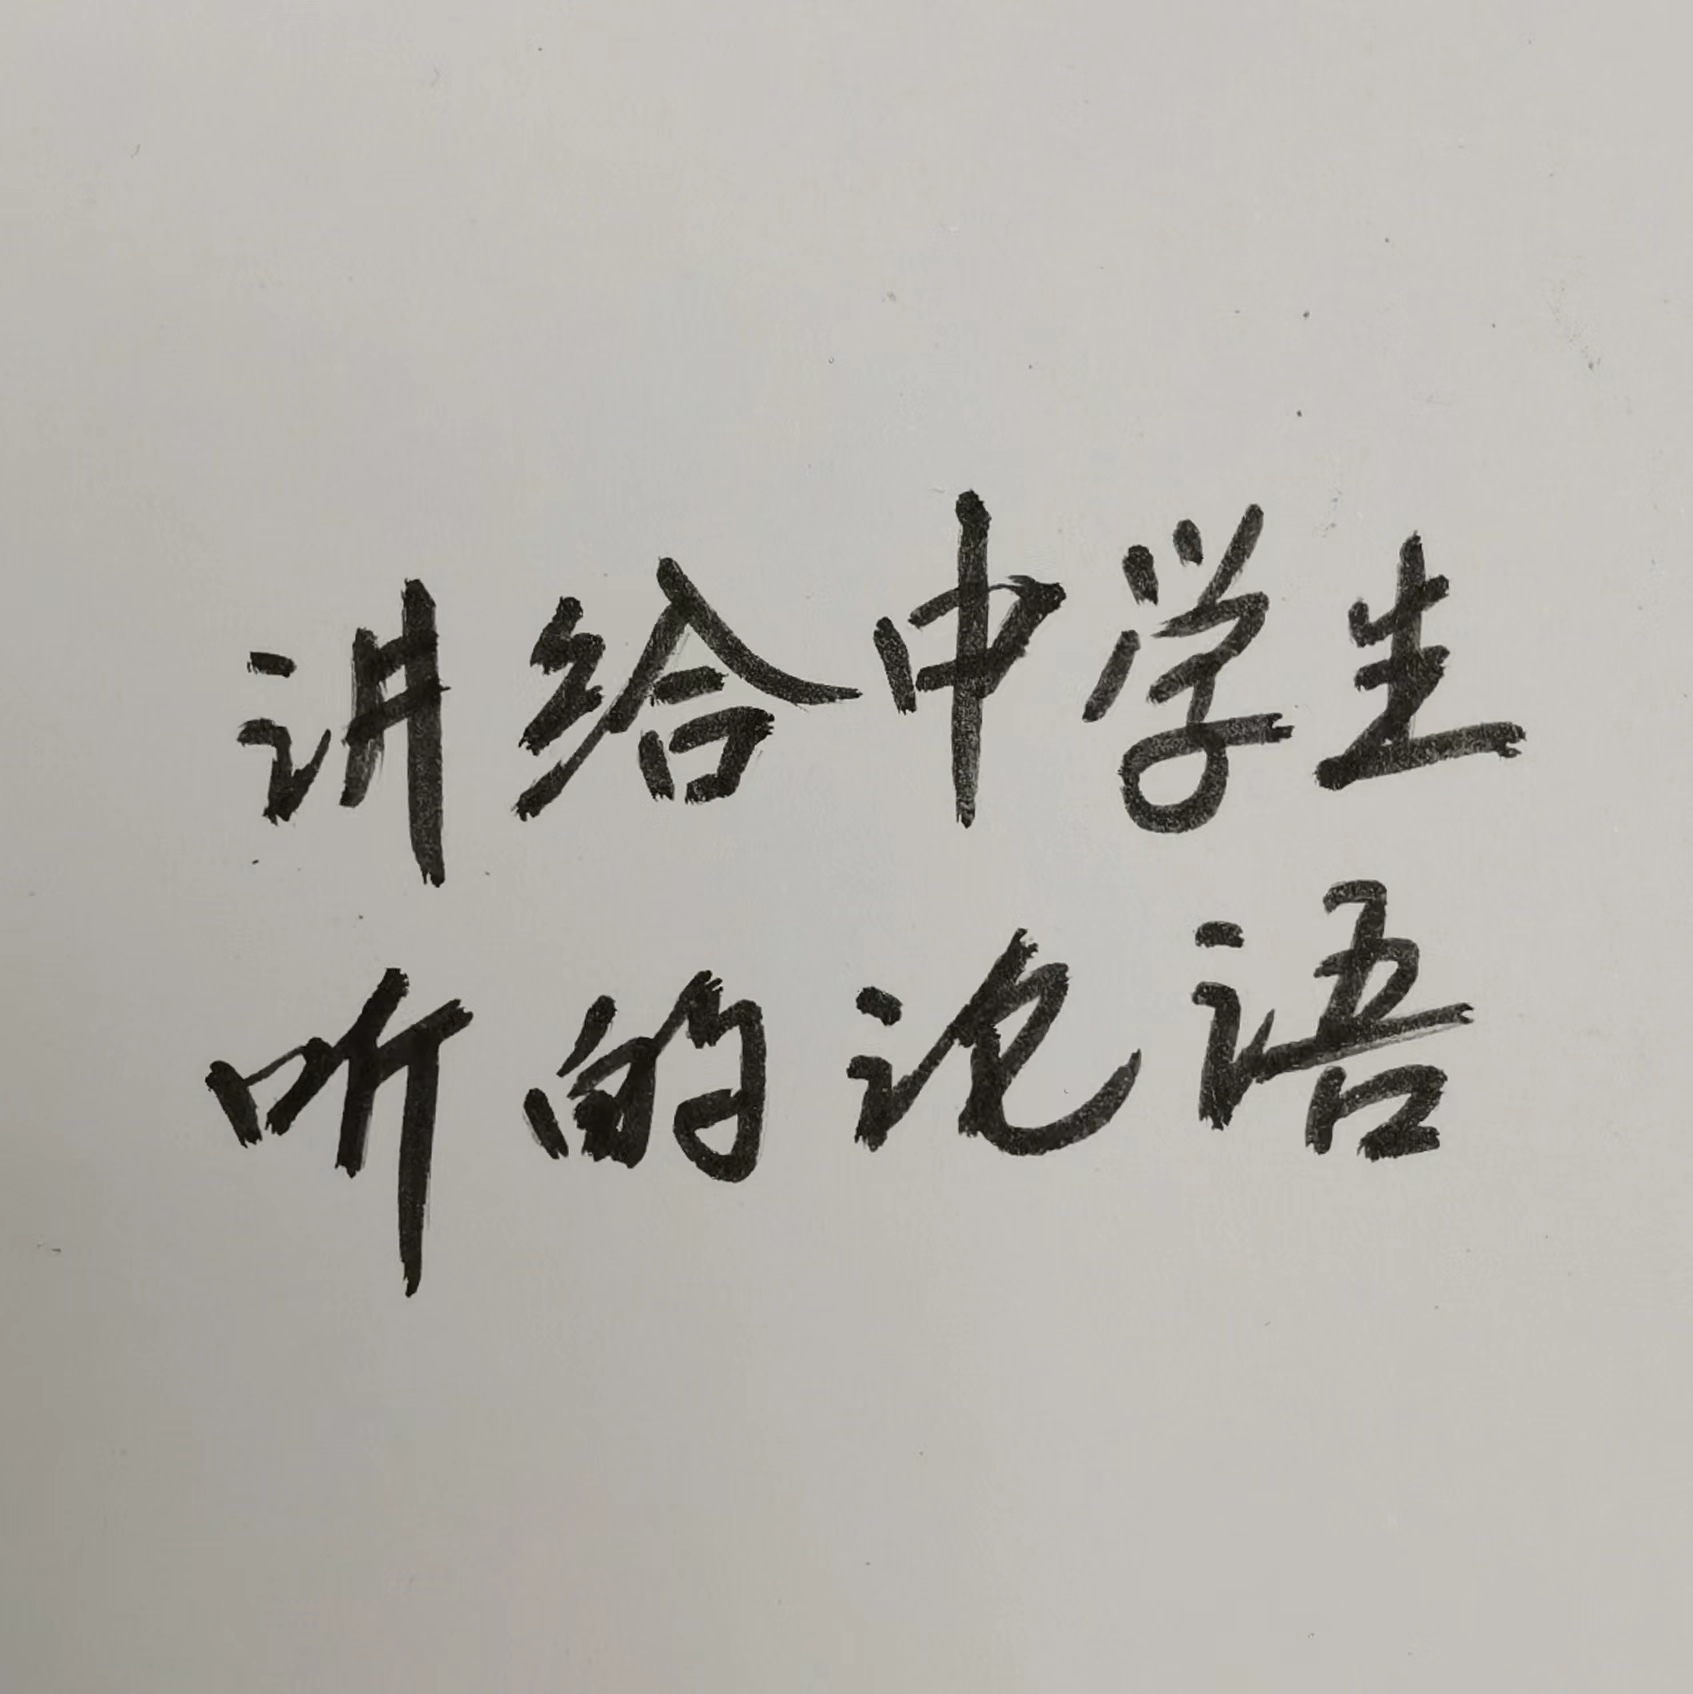 讲给中学生
听的论语